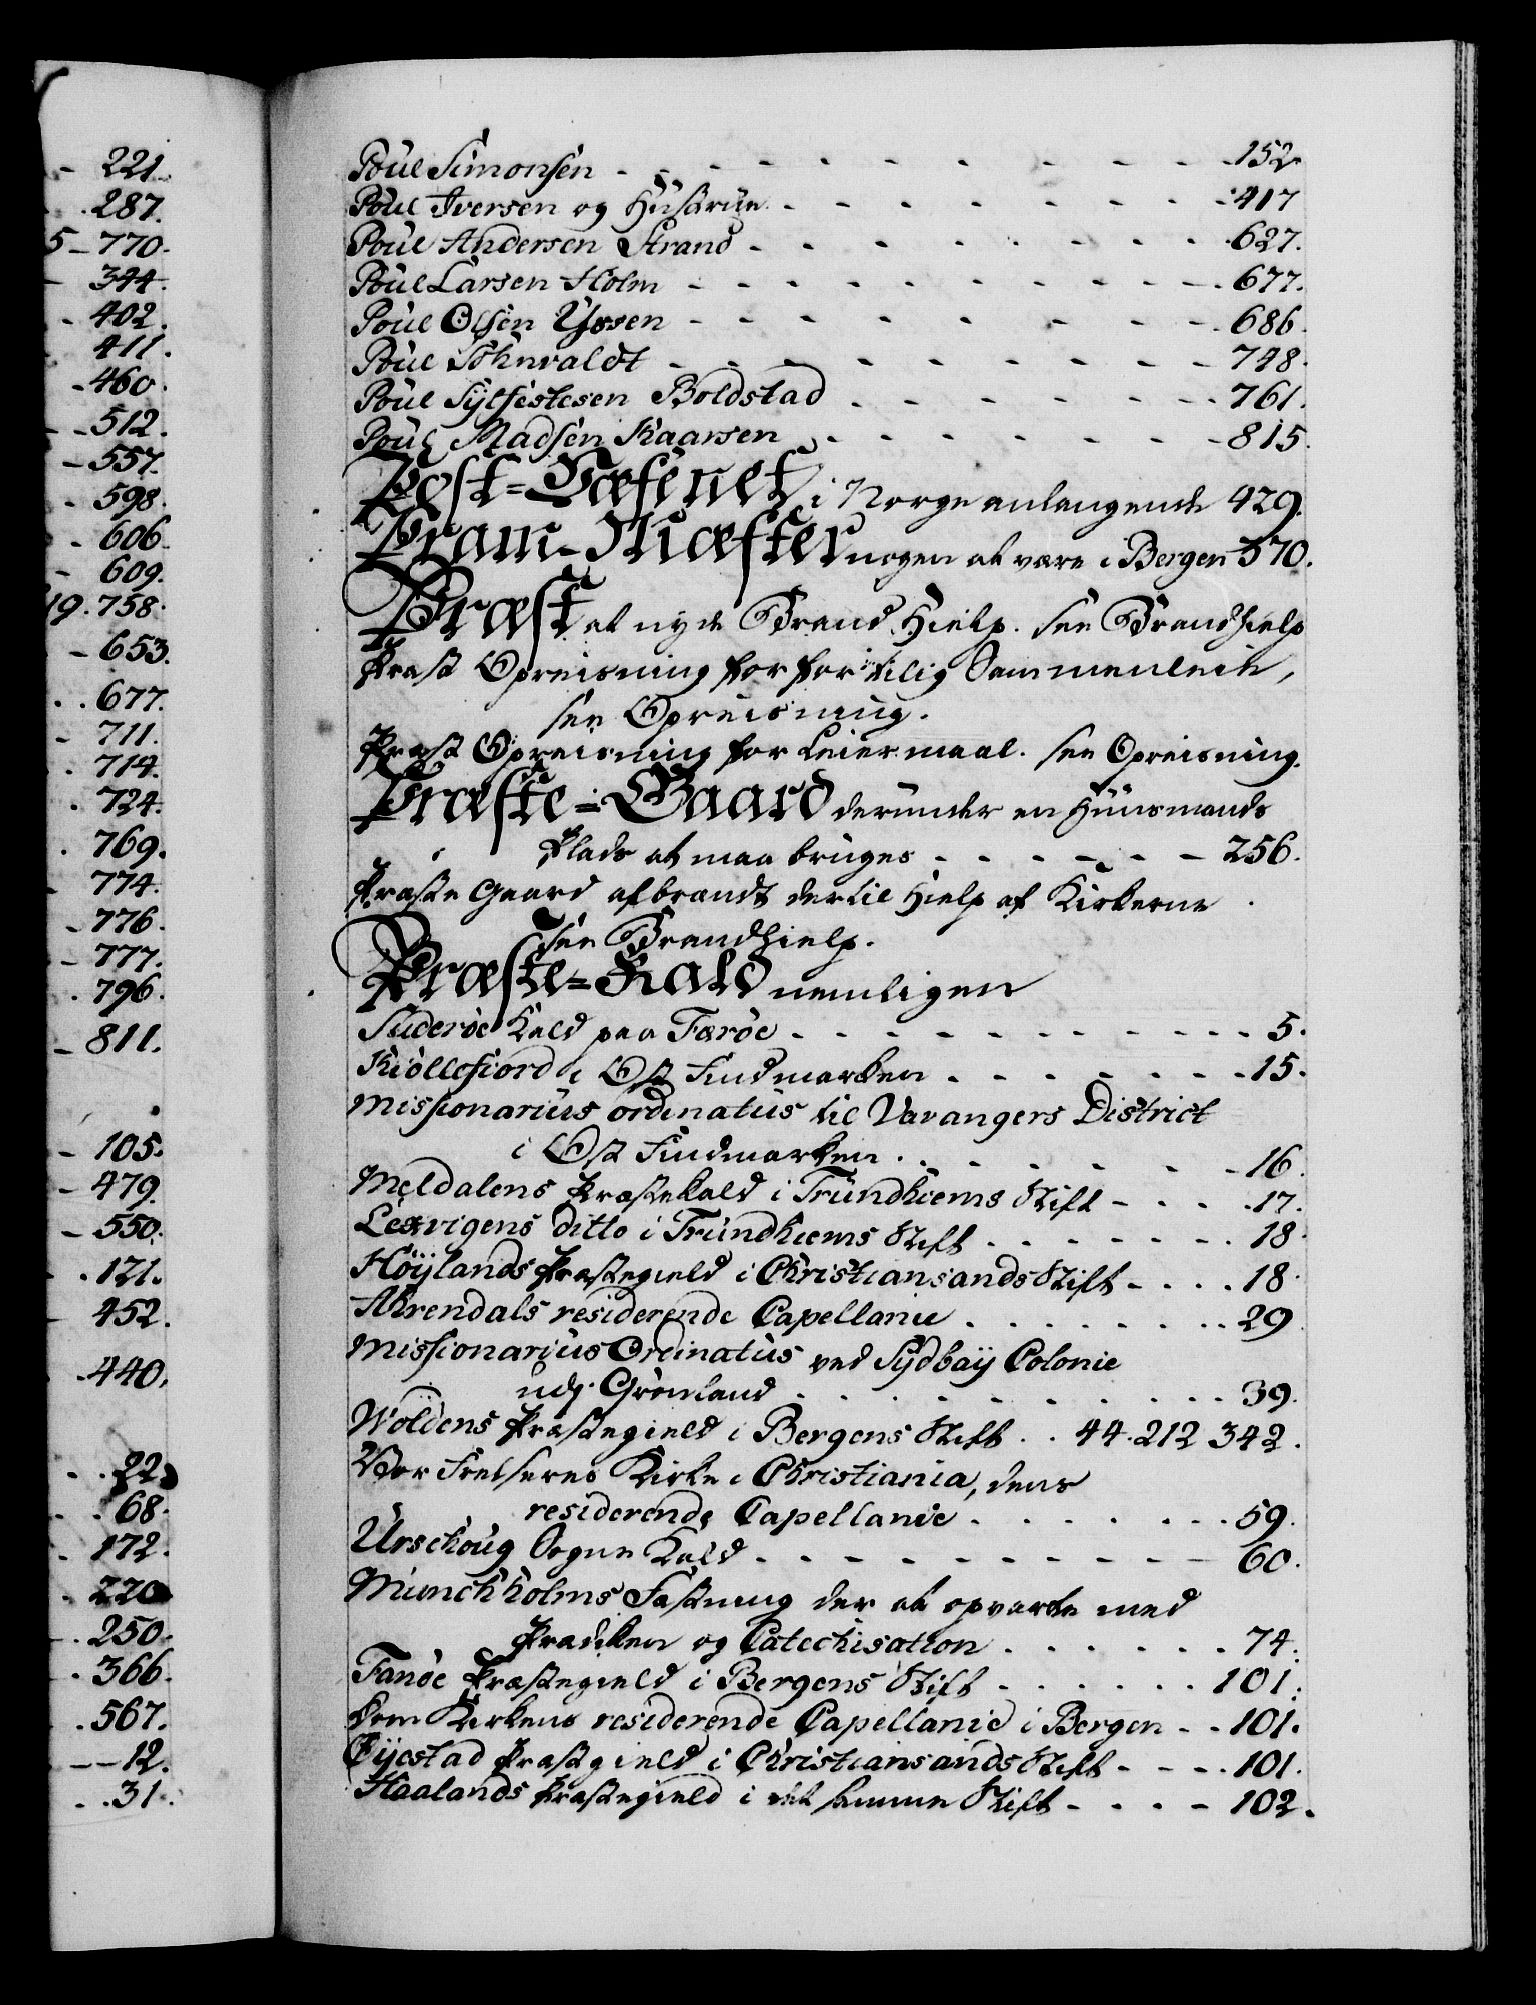 221.
287.
5-770.
344.
402.
411.
460.
512.
557.
598.
606.
609.
19.758.
653.
677.
711.
714.
724.
769.
774.
776.
777.
796.
811.
105.
479.
550.
121.
452.
440.
22.
68.
172.
220
250.
366.
567.
12.
31.
Poul Simonsen - - - - - - - - - - 152
Poul Iversen og Hustrue - - - - - - - - 417
Poul Andersen Strand - - - - - - - - 627.
Poul Larsen Holm - - - - - - - - - 677.
Poul Olsen Yssen - - - - - - - - - 686.
Poul Söhnvaldt - - - - - - - - - 748.
Poul Sylfestesen Boldstad - - - - - - - 761.
Poul Madsen Kaarsen - - - - - - - 815.
Post-Væsenet i Norge anlangende 429.
Pram-Mæster nogen at være i Bergen 570.
Præst at nyde Brand Hielp. see Brandhielp
Præst Opreisning for for tilig Sammenleie,
see Opreisning.
Præst Opreisning for Leiermaal. see Opreisning.
Præste-Gaard derunder en Huusmands
Plads at maa bruges - - - - - - 256.
Præste Gaard afbrændt dertil Hielp af Kirkerne
see Brandhielp.
Præste-Kald nemligen
Suderöe Kald paa Færöe - - - - - - - - - 5.
Kiöllefiord i Ost Findmarken - - - - - - - 15.
Missionarius ordinatus til Varangers District
i Ost Findmarken. - - - - - - - 16.
Meldalens Præstekald i Trundhiems Stift - - - - 17.
Lexvigens ditto i Trundhiems Stift . . . . . . . 18.
Höylands Præstegield i Christiansands Stift - . . . 18.
Ahrendals residerende Capellanie . . . . . . . . 29
Missionarius Ordinatus ved Sydbaÿ Colonie
udj Grönland . . . . . . . . . . . 39.
Woldens Præstegield i Bergens Stift . . 44.212 342.
Vor Frelseres Kirke i Christiania, dens
residerende Capellanie . . . . . . . 59.
Urschoug Sogne Kald - - - - - - - - - - 60.
Munchholms Fæstning der at opvarte med
Prædiken og Catechisation . . . . . . . 74.
Fanöe Præstegield i Bergens Stift - . . . . . 101.
Dom Kirkens residerende Capellanie i Bergen - - 101.
Öyestad Præstegield i Christiansands Stift - - - - 101.
Haalands Præstegield i det samme Stift - - - - 102.